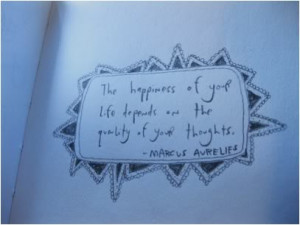 The happiness of your
life depends on the
quality of your thoughts.
- MARCUS AURELIUS